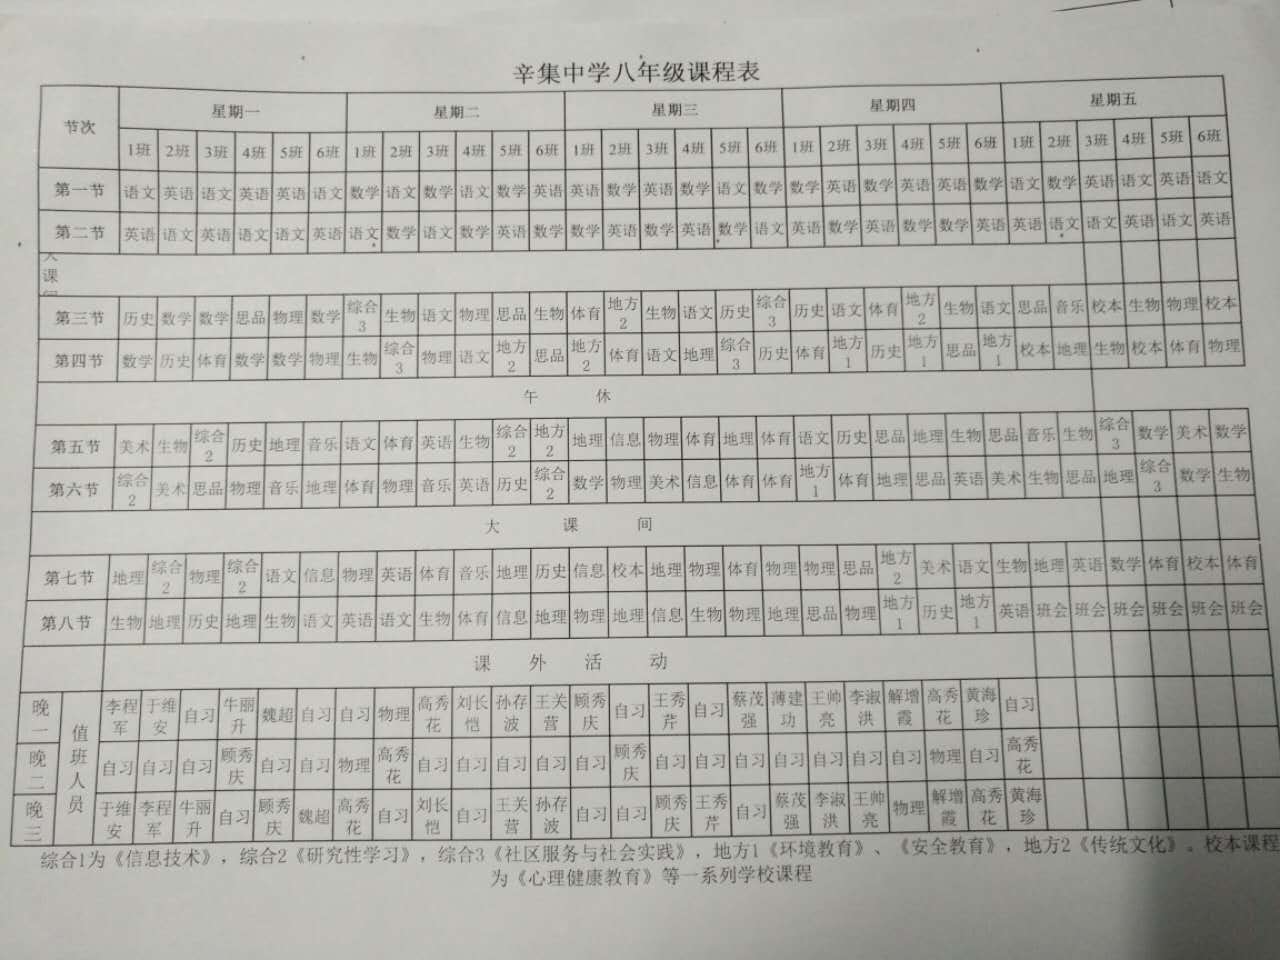 辛集中学八年级课程表
节次 星期一 星期二 星期三 星期四 星期五
1班 2班 3班 4班 5班 6班 1班 2班 3班 4班 5班 6班 1班 2班 3班 4班 5班 6班 1班 2班 3班 4班 5班 6班 1班 2班 3班 4班 5班 6班
第一节 语文 英语 语文 英语 英语 语文 数学 语文 数学 语文 数学 英语 英语 数学 英语 数学 语文 数学 数学 英语 数学 英语 英语 数学 语文 数学 英语 语文 英语 语文
第二节 英语 语文 英语 语文 语文 英语 语文 数学 语文 数学 英语 数学 数学 英语 数学 英语 数学 语文 英语 数学 英语 数学 数学 英语 英语 语文 语文 英语 语文 英语
大课间
第三节 历史 数学 数学 思品 物理 数学 综合3 生物 语文 物理 思品 生物 体育 地方2 生物 语文 历史 综合3 历史 语文 体育 地方2 生物 语文 思品 音乐 校本 生物 物理 校本
第四节 数学 历史 体育 数学 数学 物理 生物 综合3 物理 语文 地方2 思品 地方2 体育 语文 地理 综合3 历史 体育 地方1 历史 地方1 思品 地方1 校本 地理 生物 校本 体育 物理
午 休
第五节 美术 生物 综合2 历史 地理 音乐 语文 体育 英语 生物 综合2 地方2 地理 信息 物理 体育 地理 体育 语文 历史 思品 地理 生物 思品 音乐 生物 综合3 数学 美术 数学
第六节 综合2 美术 思品 物理 音乐 地理 体育 物理 音乐 英语 历史 综合2 数学 物理 美术 信息 体育 体育 地方1 体育 地理 思品 英语 美术 生物 思品 地理 综合3 数学 生物
大 课 间
第七节 地理 综合2 物理 综合2 语文 信息 物理 英语 体育 音乐 地理 历史 信息 校本 地理 物理 体育 物理 物理 思品 地方2 美术 语文 生物 地理 英语 数学 体育 校本 体育
第八节 生物 地理 历史 地理 生物 语文 英语 语文 生物 体育 信息 地理 物理 地理 信息 生物 物理 地理 思品 物理 地方1 历史 地方1 英语 班会 班会 班会 班会 班会 班会
课 外 活 动
晚一 值班人员 李程军 于维安 自习 牛丽升 魏超 自习 自习 物理 高秀花 刘长恺 孙存波 王关营 顾秀庆 自习 王秀芹 自习 蔡茂强 薄建功 王帅亮 李淑洪 解增霞 高秀花 黄海珍 自习
晚二 自习 自习 自习 顾秀庆 自习 自习 物理 高秀花 自习 自习 自习 自习 自习 顾秀庆 自习 自习 自习 自习 自习 自习 自习 物理 自习 高秀花
晚三 于维安 李程军 牛丽升 自习 顾秀庆 魏超 高秀花 自习 刘长恺 自习 王关营 孙存波 自习 自习 顾秀庆 王秀芹 自习 蔡茂强 李淑洪 王帅亮 物理 解增霞 高秀花 黄海珍
综合1为《信息技术》，综合2《研究性学习》，综合3《社区服务与社会实践》，地方1《环境教育》、《安全教育》，地方2《传统文化》。校本课程
为《心理健康教育》等一系列学校课程